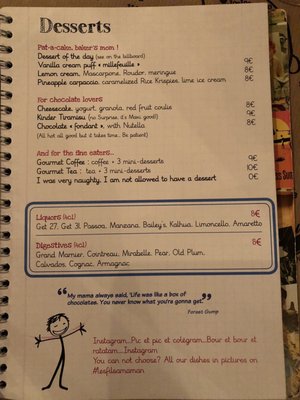 Desserts
Pat-a-cake, baker's mom !
Dessert of the day (see on the billboard)
Vanilla cream puff « millefeuille » 9€
Lemon cream, Mascarpone, Roudor, meringue 8€
Pineapple carpaccio, caramelized Rice Krispies, lime ice cream 8€
For chocolate lovers
Cheesecake, yogurt, granola, red fruit coulis 8€
Kinder Tiramisu (no Surprise, it's Maxi good!) 9€
Chocolate « fondant », with Nutella 8€
(All hot all good but it takes time... Be patient)
And for the fine eaters...
Gourmet Coffee : coffee + 3 mini-desserts 9€
Gourmet Tea : tea + 3 mini-desserts 10€
I was very naughty, I am not allowed to have a dessert 0€
Liquors (4cl) 8€
Get 27, Get 31, Passoa, Manzana, Bailey's, Kalhua, Limoncello, Amaretto
Digestives (4cl) 8€
Grand Marnier, Cointreau, Mirabelle, Pear, Old Plum,
Calvados, Cognac, Armagnac
“My mama always said, 'Life was like a box of
chocolates. You never know what you're gonna get.”
Forest Gump
Instagram...Pic et pic et colégram...Bour et bour et
ratatam...Instagram
You can not choose? All our dishes in pictures on
#lesfilsamaman